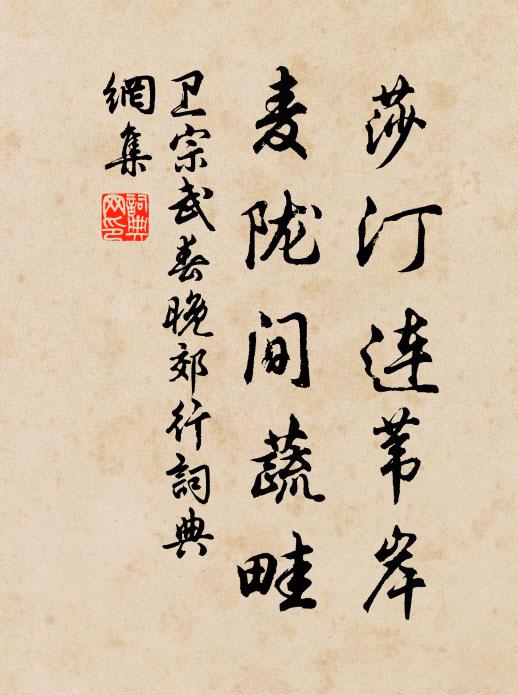 莎汀连苇岸
麦陇间蔬畦
卫宗武春晚郊行詞典
網集
詞典网印